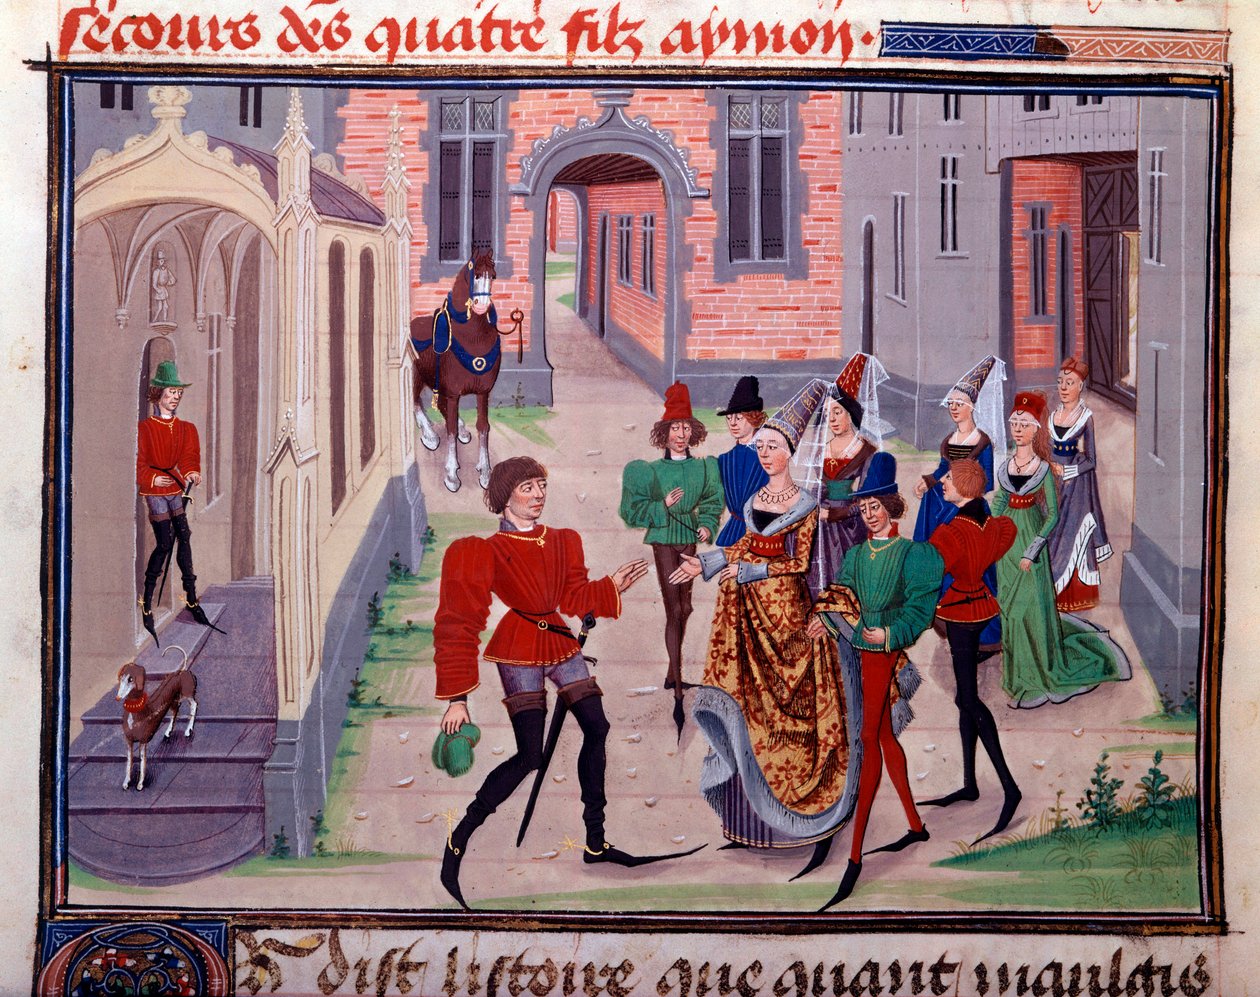 secours des quatre filz aymon.
Dist listoire que quant maulgis